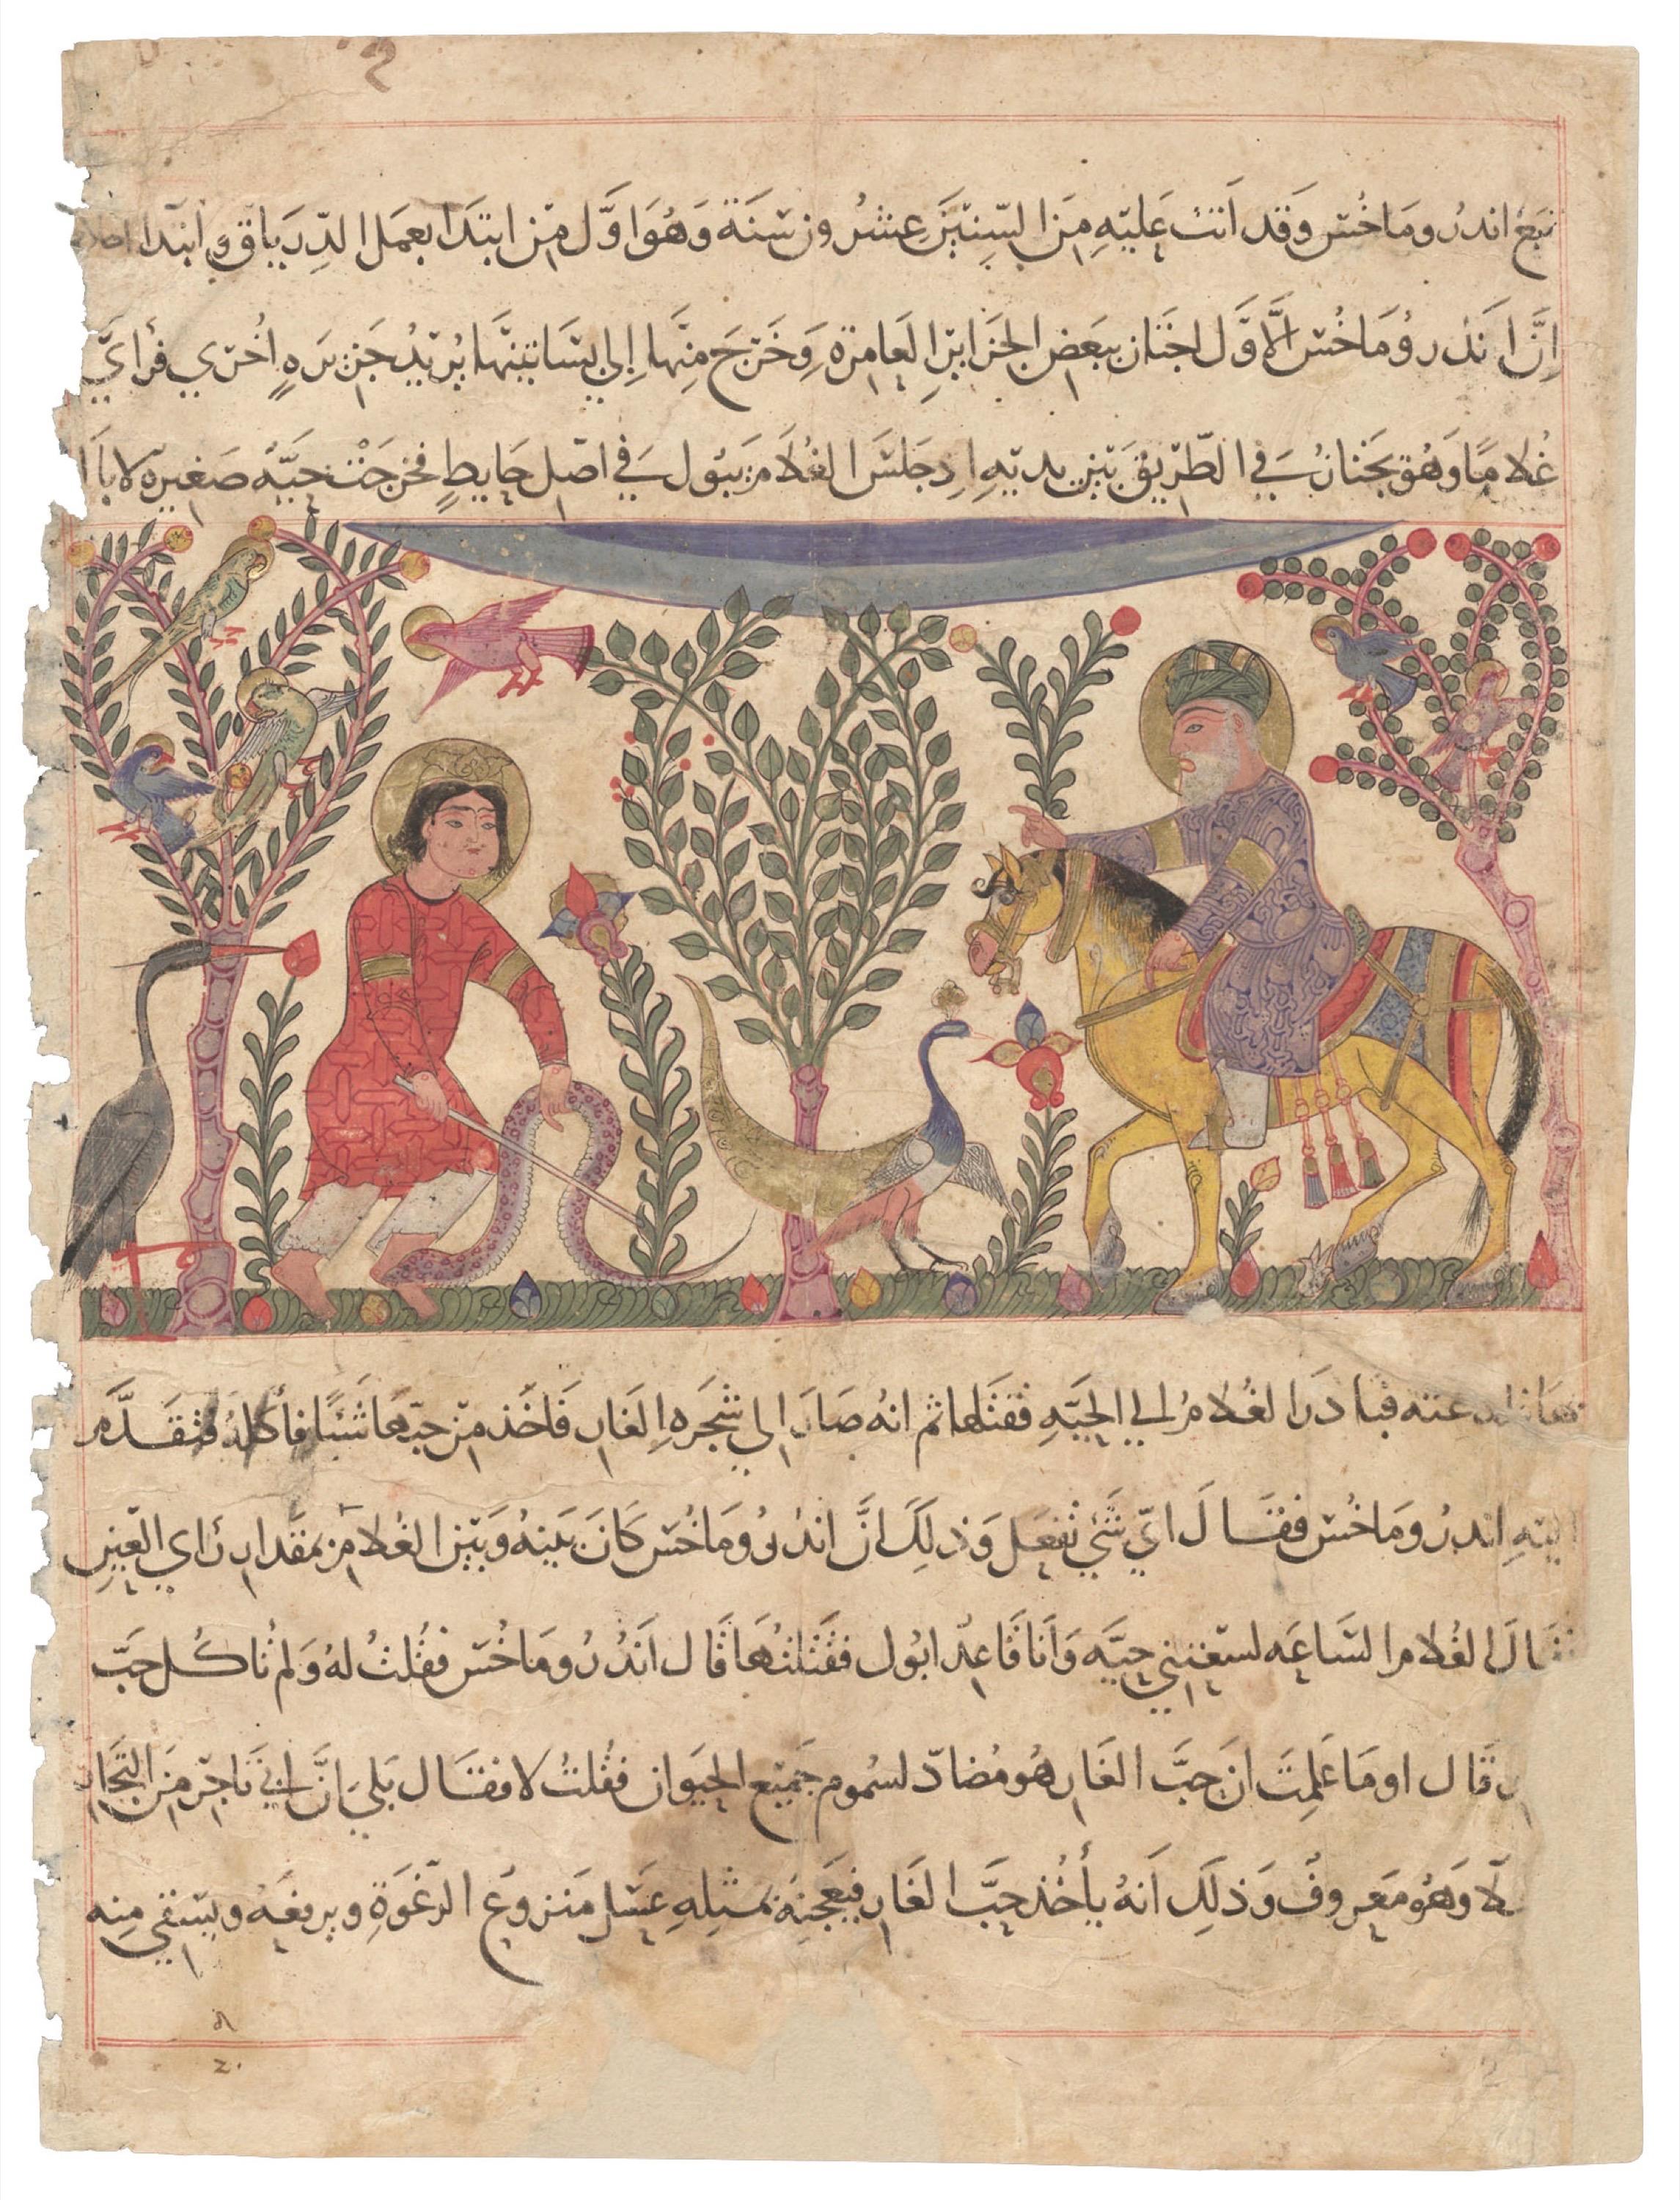 نبغ اندروماخس وقد اتت عليه من السنين عشرون سنة وهو اول من ابتدا بعمل الدرياق وابتدا
إن اندروماخس الاول اجتاز ببعض الجزاير العامرة وخرج منها إلى بساتينها يريد جزيره اخرى فرأى
غلاما وهو يجتاز في الطريق بين يديه اذ جلس الغلام يبول في اصل حايط فخرجت حيّة صغيرة
فبادر الغلام الى الحيه فقتلها ثم انه صار الى شجره الغار فاخذ من حبها شيئا فأكله فتقدم
اليه اندروماخس فقال اي شي تفعل وذلك ان اندروماخس كان بينه وبين الغلام بمقدار رأي العين
فقال الغلام الساعه لسعتني حيّه وانا قاعد ابول فقتلتها قال اندروماخس فقلت له ولم تاكل حب
قال او ما علمت ان حب الغار هو مضاد لسموم جميع الحيوان فقلت لا فقال بلى ان اخي تاجر من التجار
وهو معروف وذلك انه يأخذ حب الغار فيعجنه بمثله عسل منزوع الرغوة ويرفعه ويستقي منه